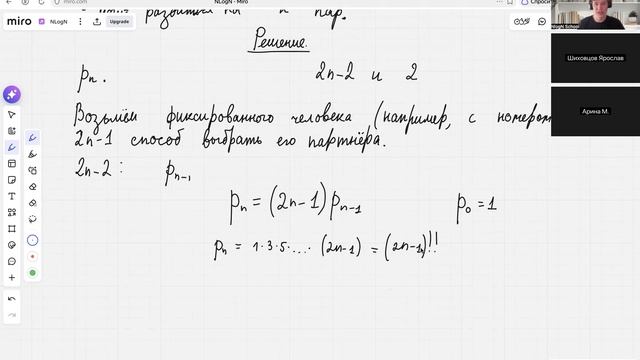 miro.com
NLogN - Miro
Спроси
miro
NLogN
Upgrade
NlogN School
разбиться на n пар.
Решение.
pₙ.
2n-2 и 2
Возьмём фиксированного человека (например, с номером
2n-1 способ выбрать его партнёра.
2n-2: pₙ₋₁
pₙ = (2n-1)pₙ₋₁
p₀ = 1
pₙ = 1·3·5·....·(2n-1) = (2n-1)!!
Шиховцов Ярослав
Арина М.